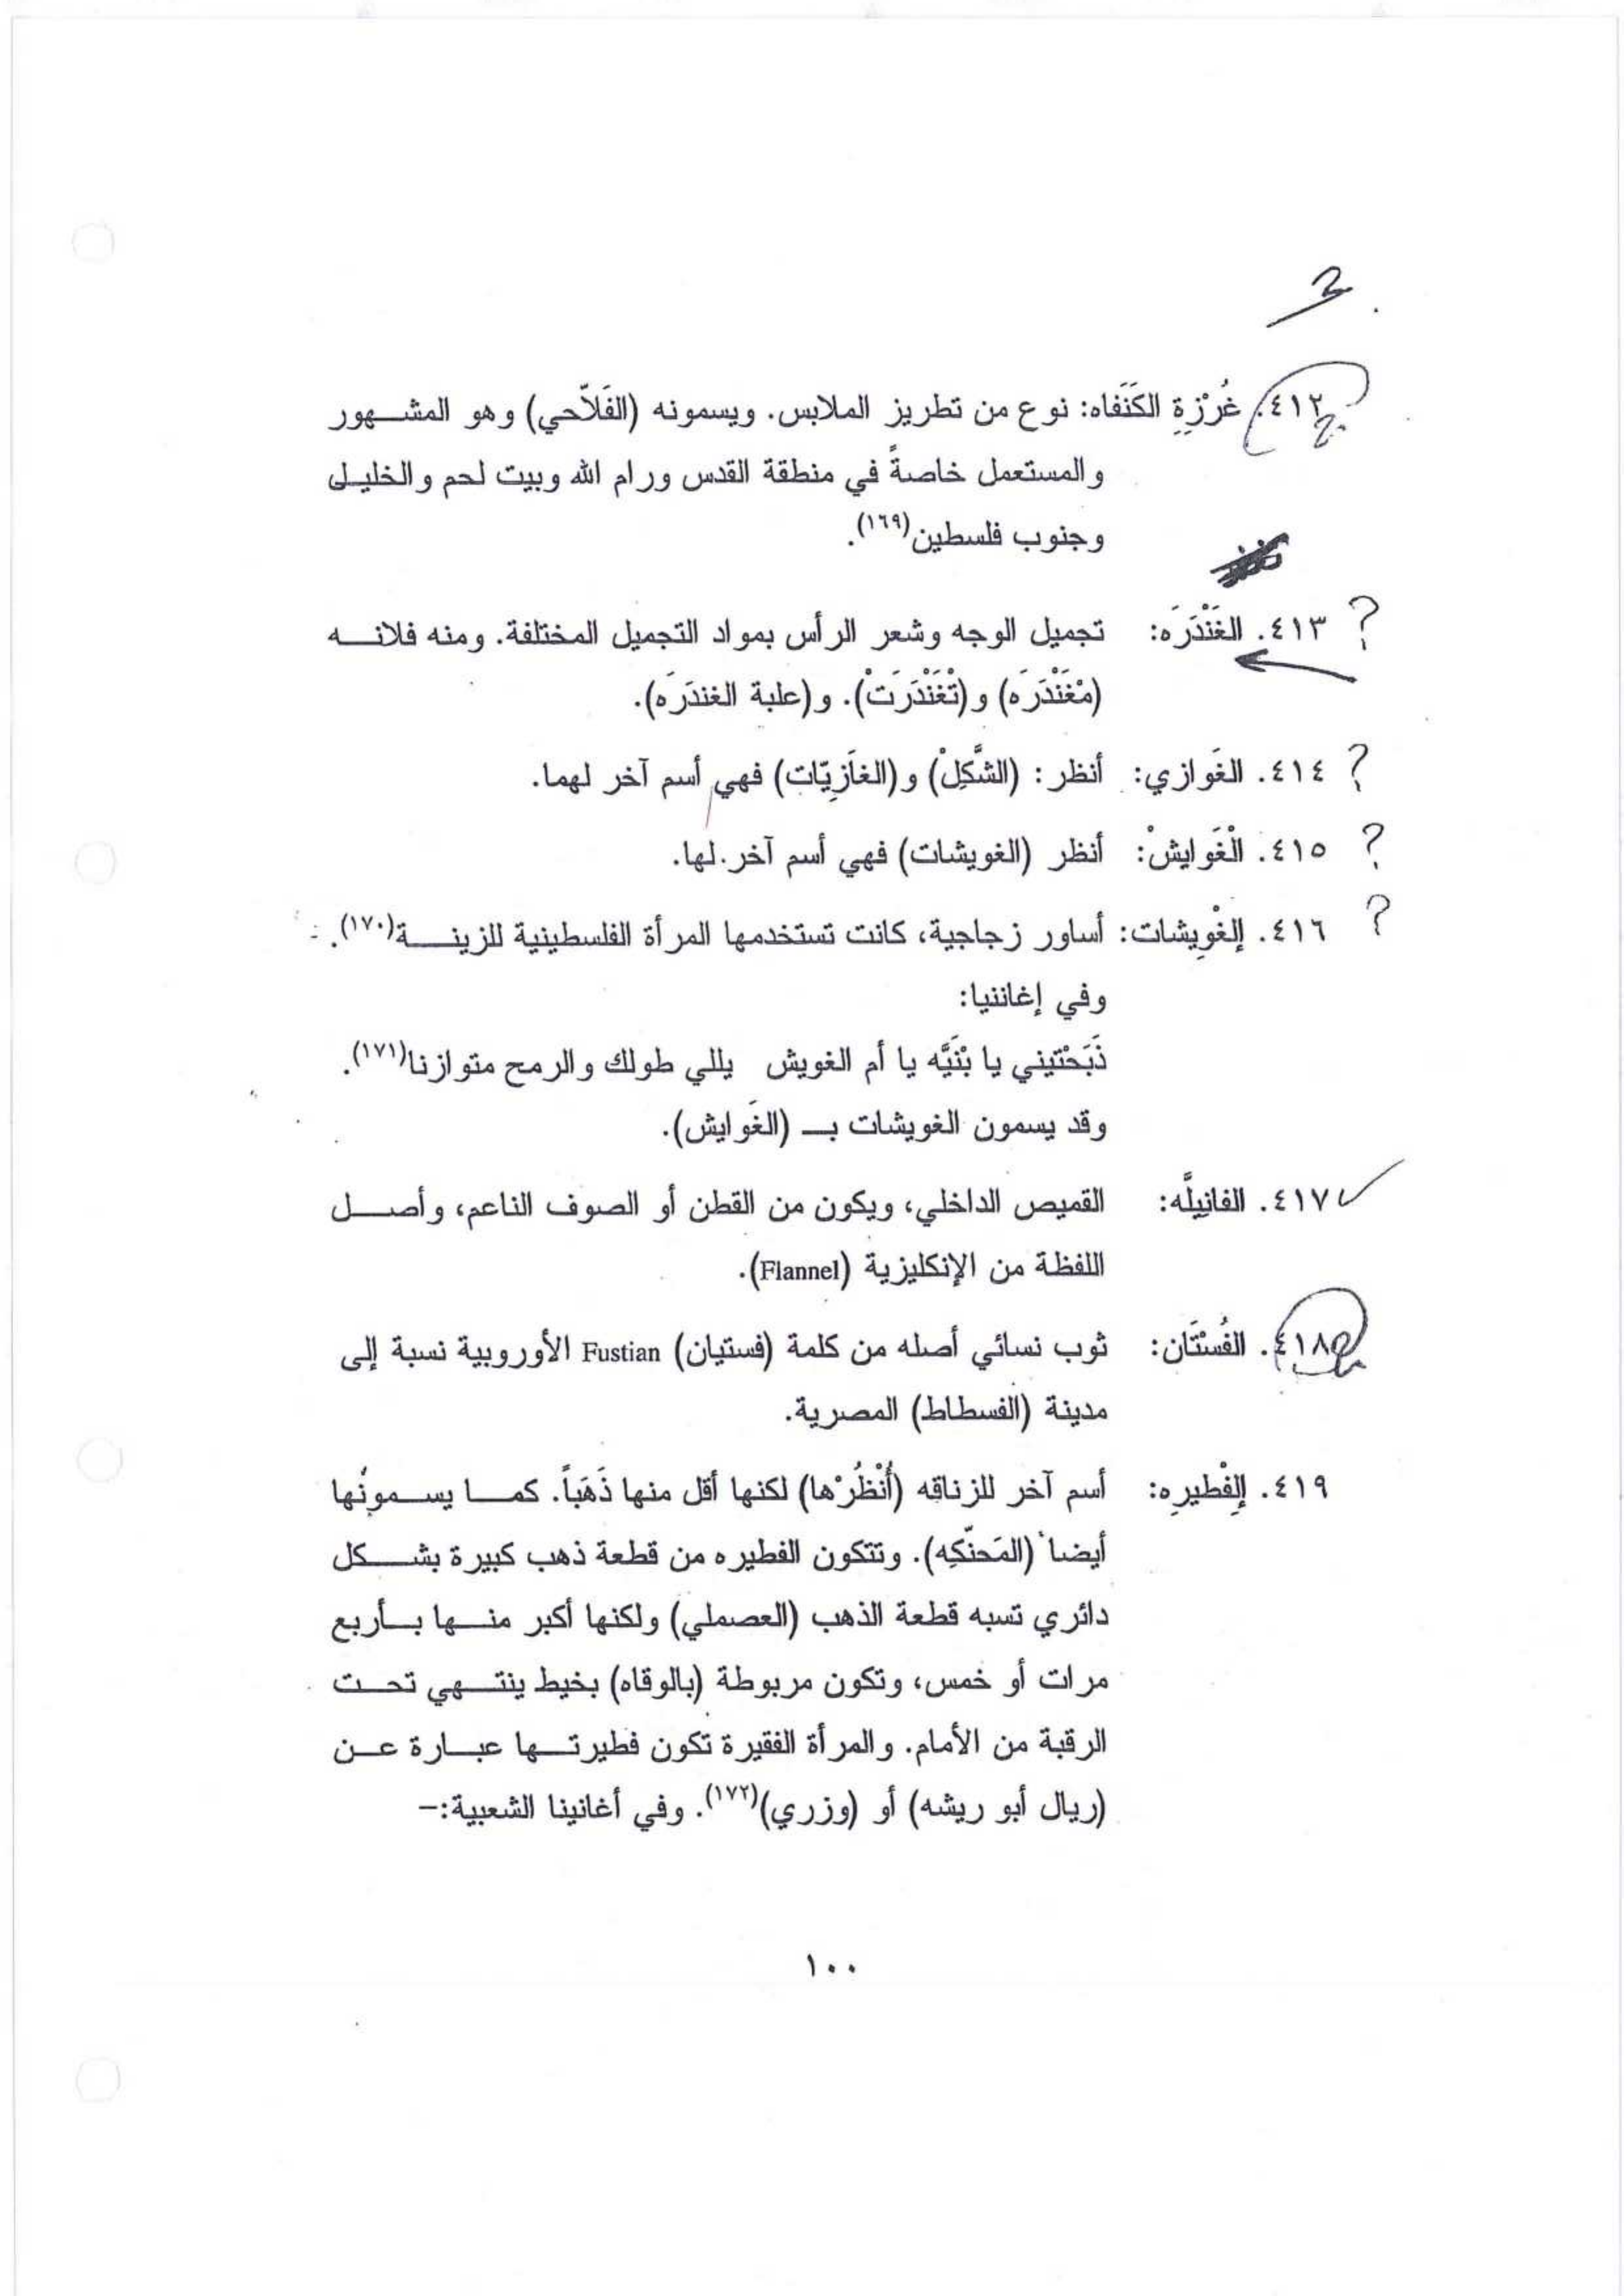 ٤١٢. غُرْزِةِ الكَنَفاه: نوع من تطريز الملابس. ويسمونه (الفَلاّحي) وهو المشهور
والمستعمل خاصةً في منطقة القدس ورام الله وبيت لحم والخليلى
وجنوب فلسطين(١٦٩).
؟ ٤١٣. الغَنْدَرَه: تجميل الوجه وشعر الرأس بمواد التجميل المختلفة. ومنه فلانه
(مْغَنْدَرَه) و(تْغَنْدَرَتْ). و(علبة الغندَرَه).
؟ ٤١٤. الغَوازي: أنظر: (الشَّكِلْ) و(الغاَزِيّات) فهي أسم آخر لهما.
؟ ٤١٥. الْغَوايشْ: أنظر (الغويشات) فهي أسم آخر لها.
؟ ٤١٦. إلغْوِيشات: أساور زجاجية، كانت تستخدمها المرأة الفلسطينية للزينة(١٧٠).
وفي إغاننيا:
ذَبَحْتيني يا بْنَيَّه يا أم الغويش يللي طولك والرمح متوازنا(١٧١).
وقد يسمون الغويشات بـ (الغَوايش).
٤١٧. الفانِيلَّه: القميص الداخلي، ويكون من القطن أو الصوف الناعم، وأصل
اللفظة من الإنكليزية (Flannel).
٤١٨. الفُسْتَان: ثوب نسائي أصله من كلمة (فستيان) Fustian الأوروبية نسبة إلى
مدينة (الفسطاط) المصرية.
٤١٩. إلِفْطيرِه: أسم آخر للزناقه (أُنْظُرْها) لكنها أقل منها ذَهَباً. كما يسمونُها
أيضاً (المَحنّكِه). وتتكون الفطيره من قطعة ذهب كبيرة بشكل
دائري تسبه قطعة الذهب (العصملي) ولكنها أكبر منها بأربع
مرات أو خمس، وتكون مربوطة (بالوقاه) بخيط ينتهي تحت
الرقبة من الأمام. والمرأة الفقيرة تكون فطيرتها عبارة عن
(ريال أبو ريشه) أو (وزري)(١٧٢). وفي أغانينا الشعبية:–
١٠٠